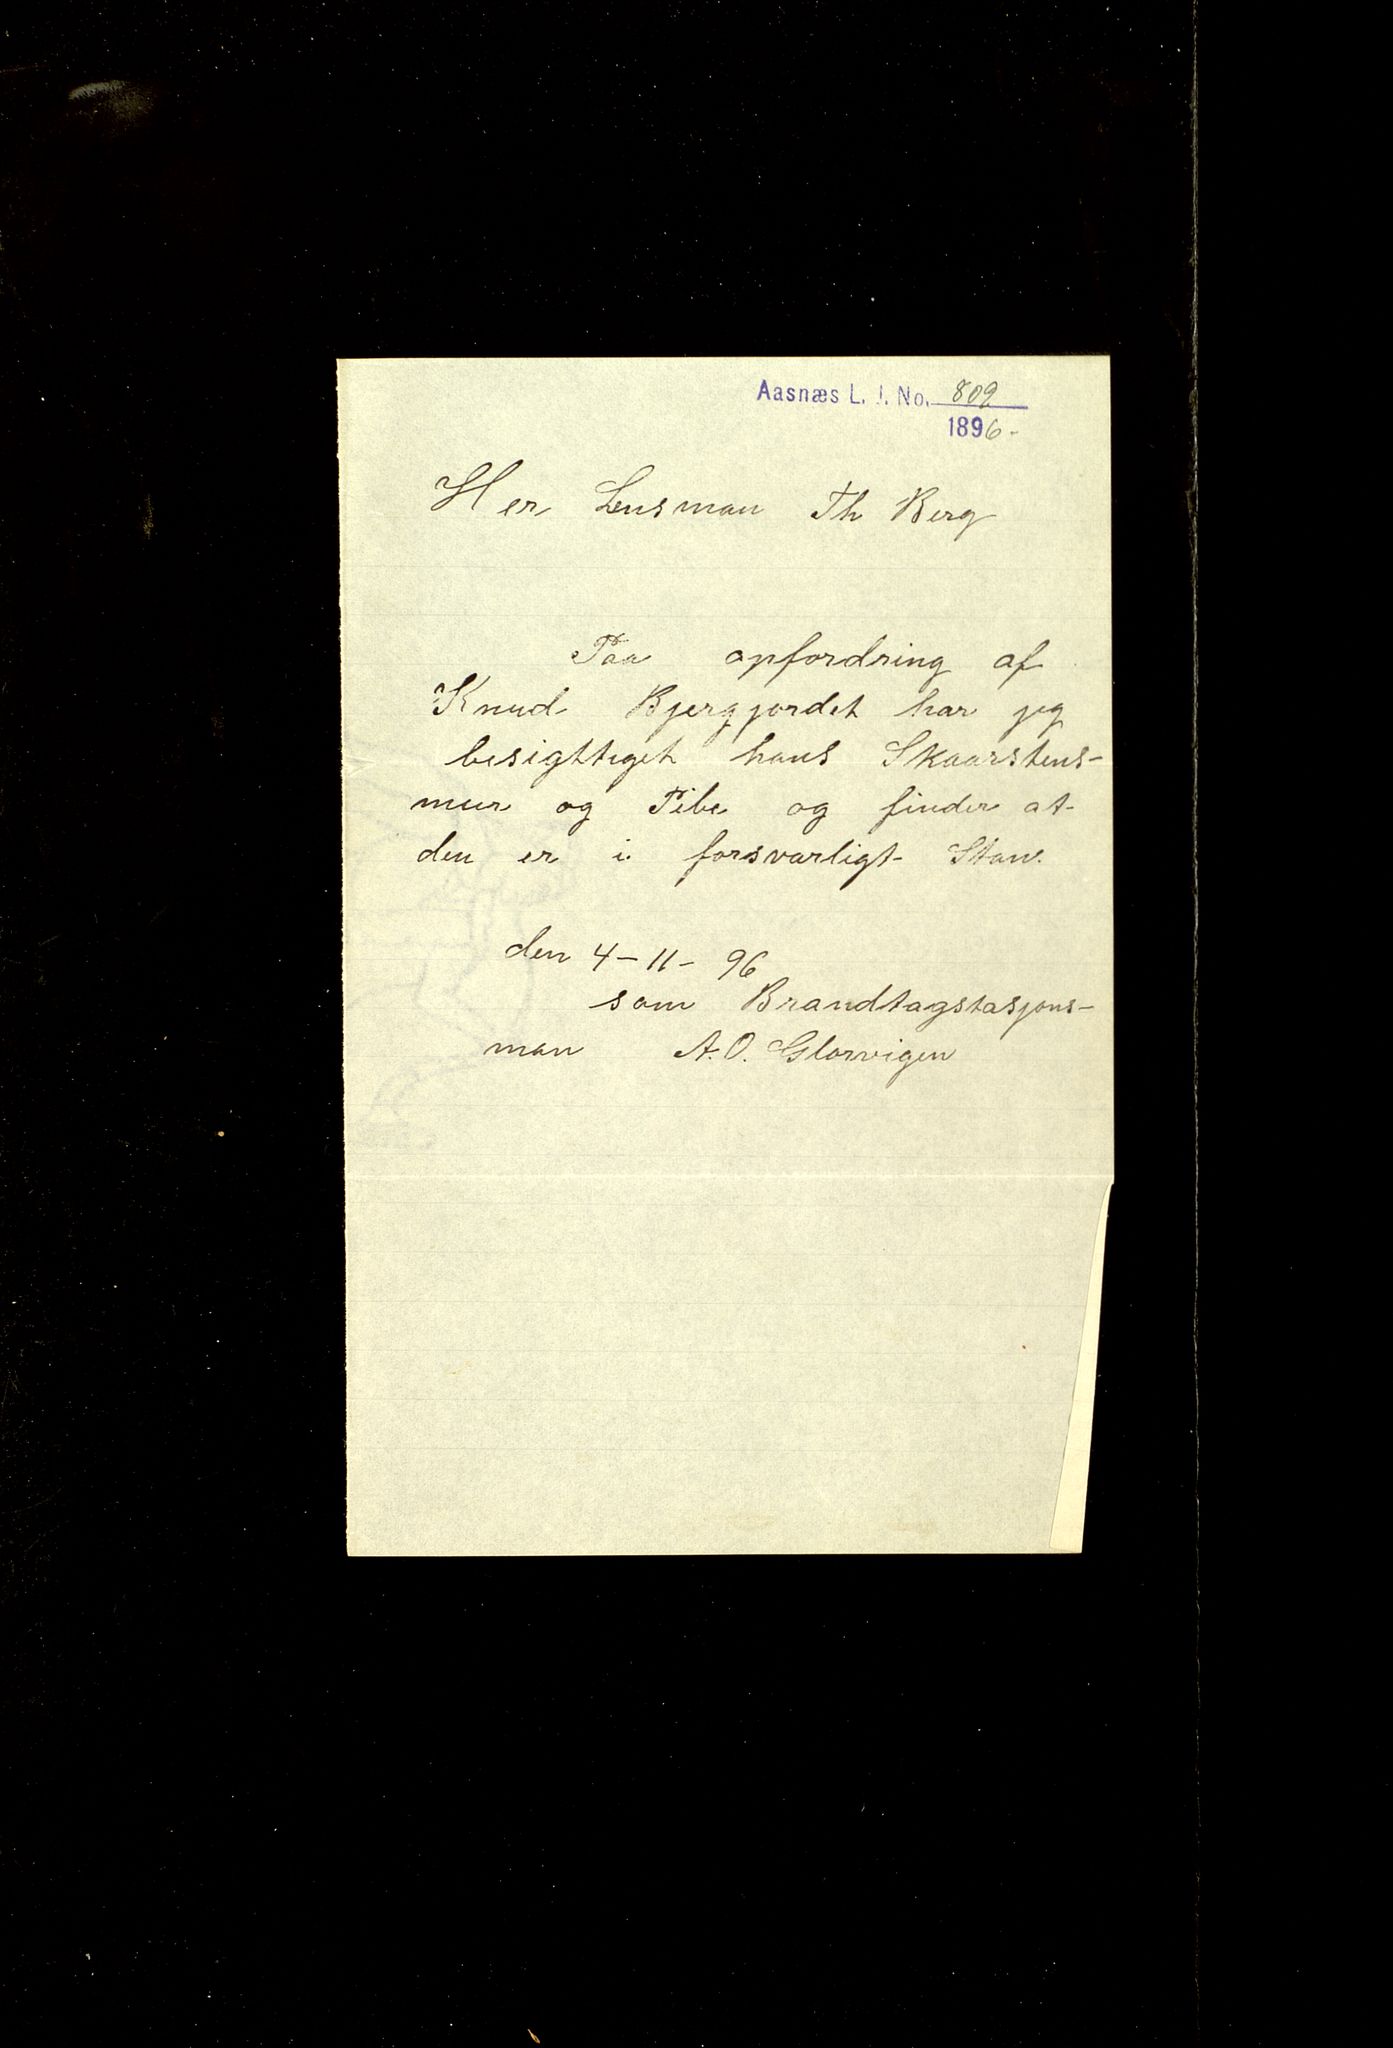 Aasnæs L. J. No. 809
1896-
Her Lensman Th Berg
Paa opfordring af
Knud Bjergjordet har jeg
besigttiget hans Skaarstens-
mur og Pibe og finder at
den er i forsvarligt Stan.
den 4-11-96
som Brandtagstasjons-
man A. O. Glorvigen